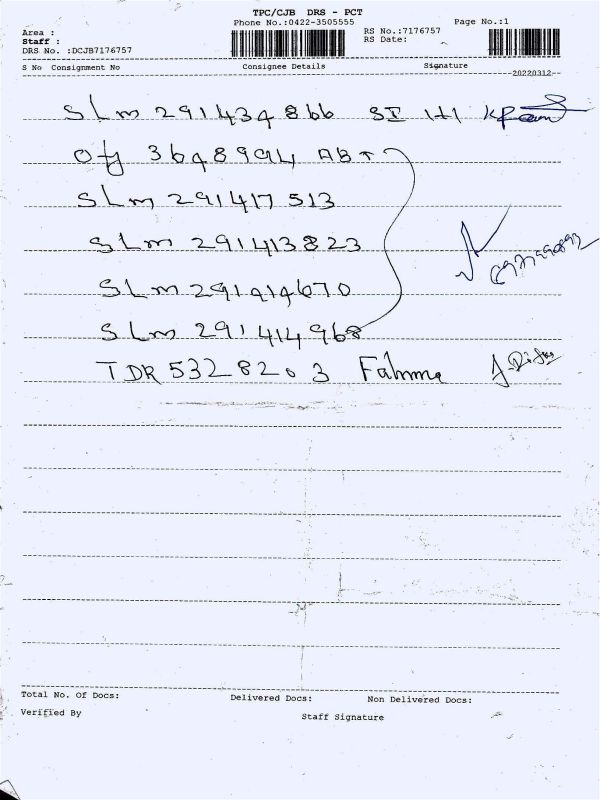 TPC/CJB DRS - PCT
Phone No.:0422-3505555 Page No.:1
Area : RS No.:7176757
Staff : RS Date:
DRS No. :DCJB7176757
S No Consignment No Consignee Details Signature
20220312
SLM 291434866 SI
3648994 ABT
SLM 291417513
SLM 291413823
SLM 291414670
SLM 291414968
TDR 5328203
Total No. Of Docs: Delivered Docs: Non Delivered Docs:
Verified By Staff Signature